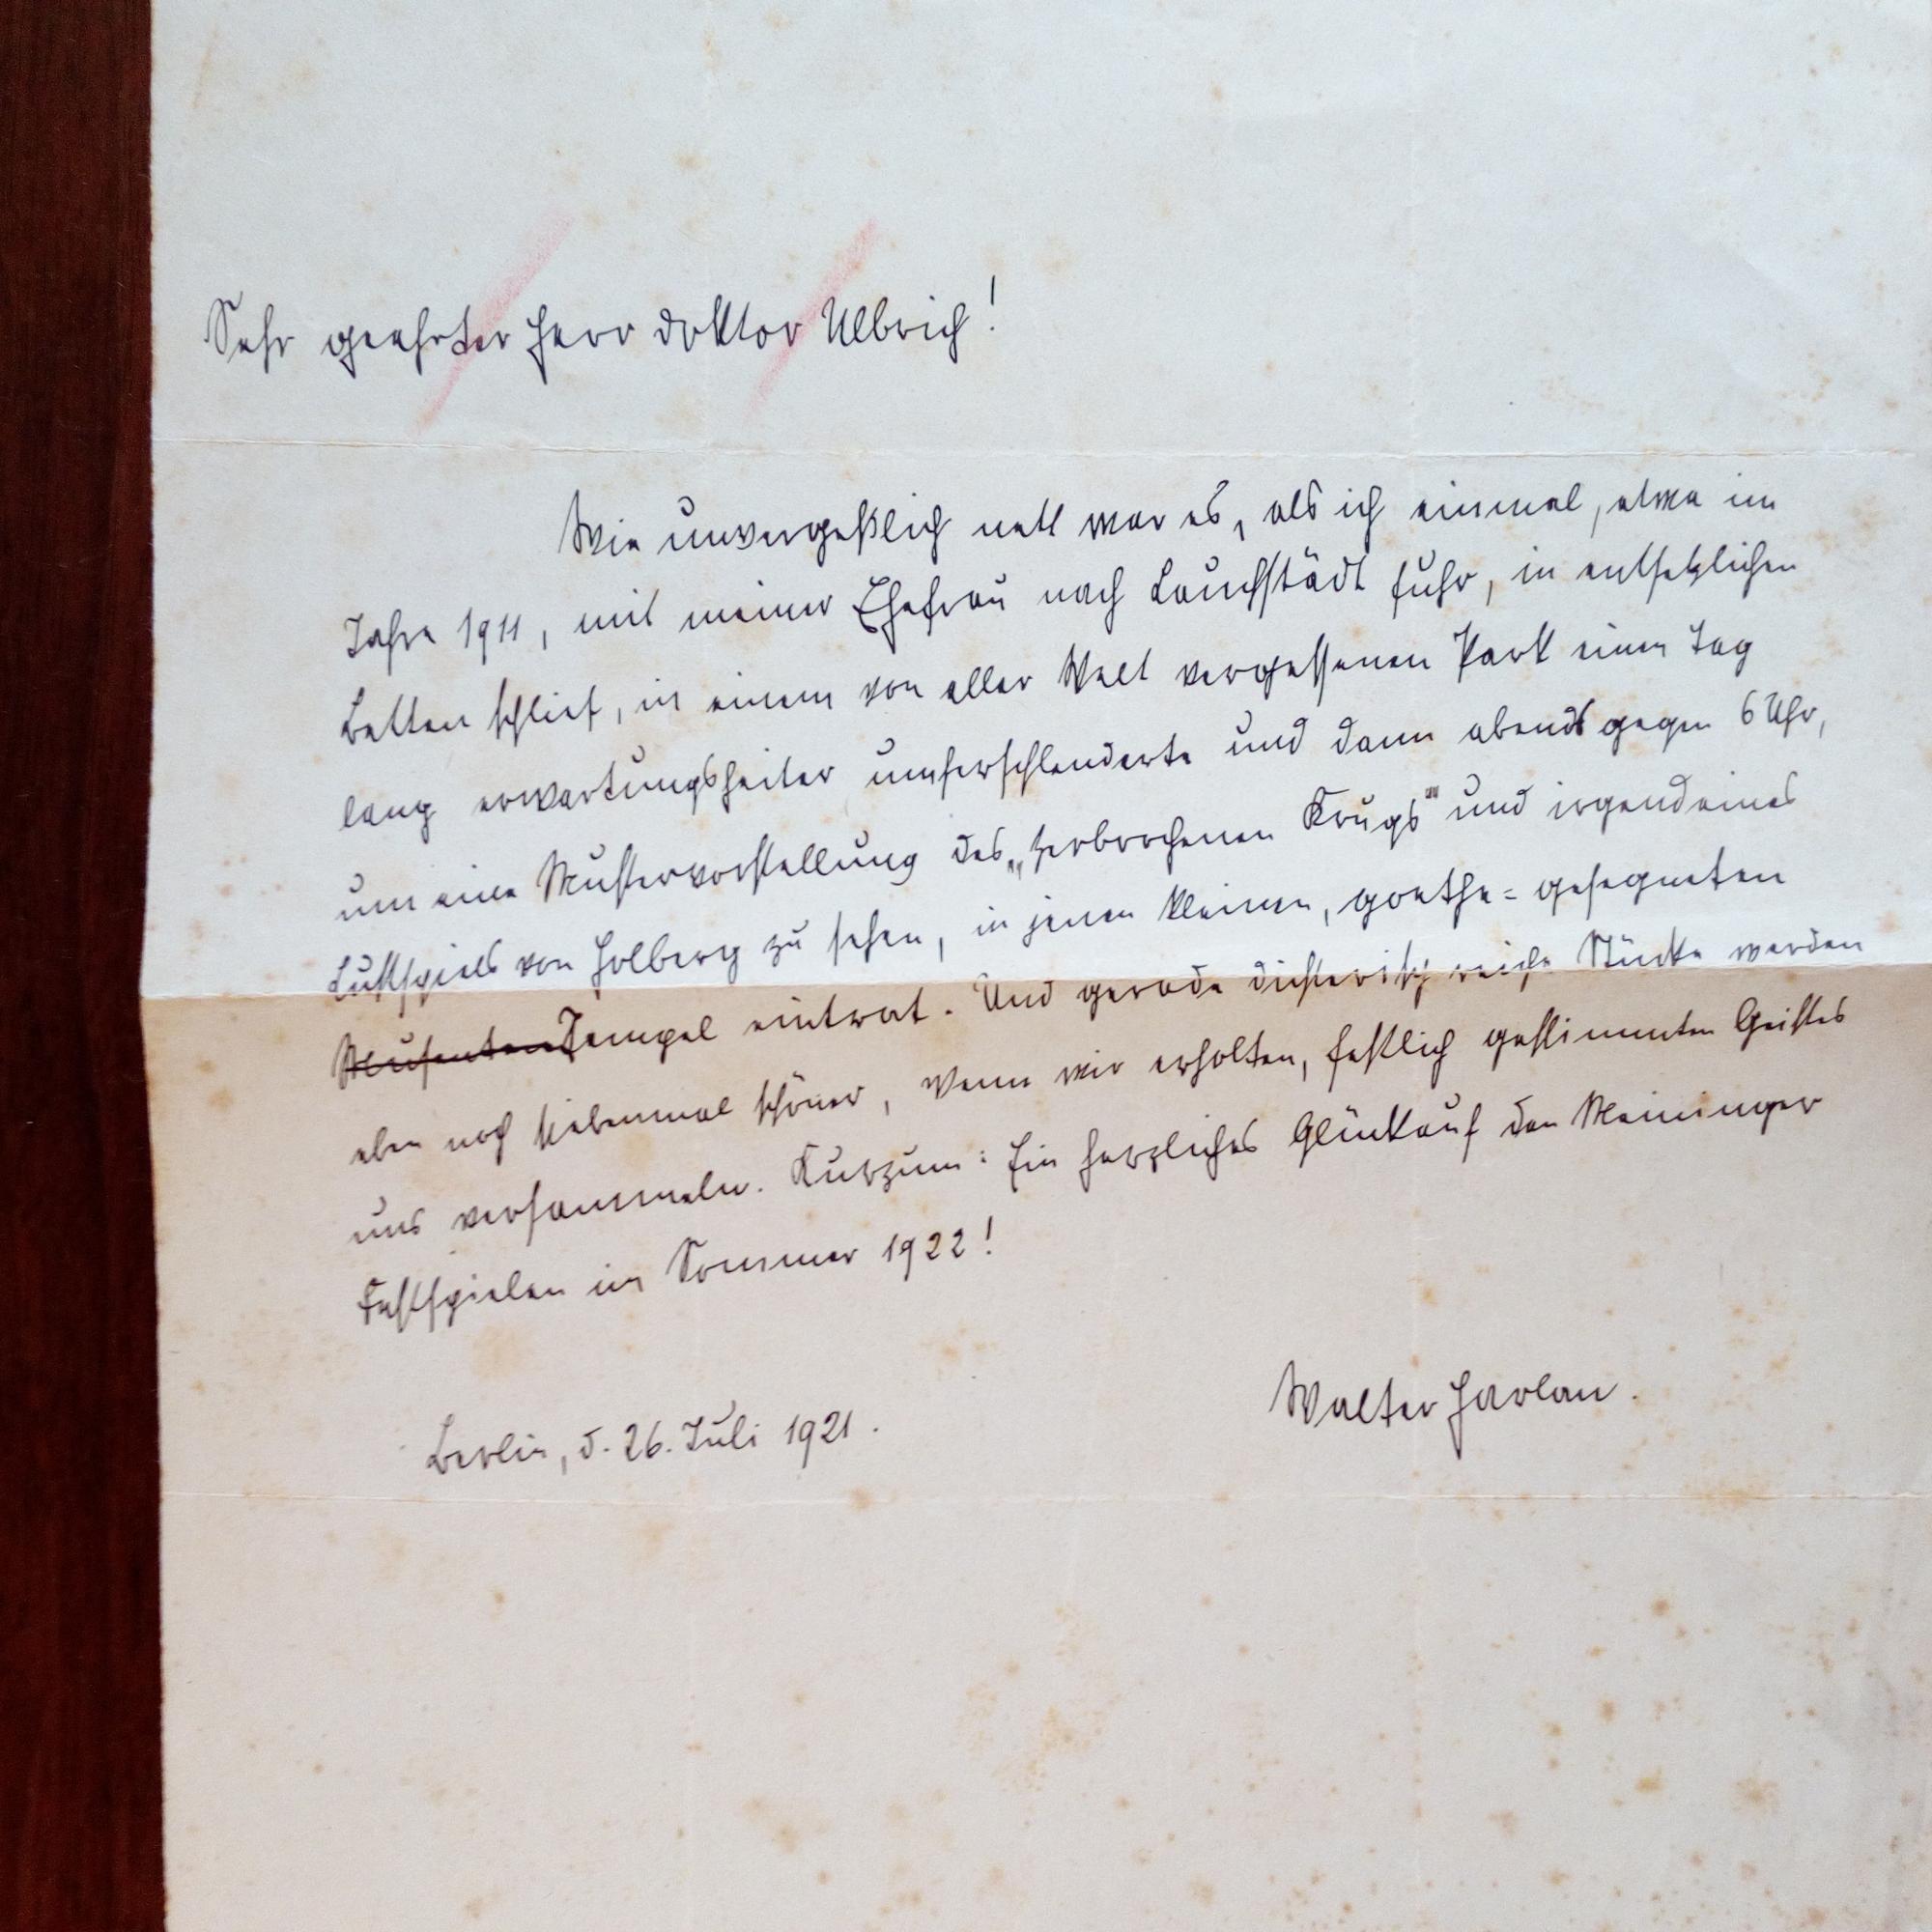 Sehr geehrter Herr Doktor Ulbrich!
Wie unvergeßlich nett war es, als ich einmal, etwa im
Jahre 1911, mit meiner Ehefrau nach Lauchstädt fuhr, in entsetzlichen
Betten schlief, in einem von aller Welt vergessenen Park einen Tag
lang erwartungsheiter umherschlenderte und dann abends gegen 6 Uhr,
um eine Mustervorstellung des „zerbrochenen Krugs" und irgendeines
Lustspiels von Holberg zu sehen, in jenen kleinen, goethe=gesegneten
Tempel eintrat. Und gerade dichterisch reiche Stücke werden
eben noch siebenmal schöner, wenn wir erholten, festlich gestimmten Geistes
uns versammeln. Kurzum: Ein herzliches Glückauf den Meininger
Festspielen im Sommer 1922!
Walter Harlan.
Berlin, d. 26. Juli 1921.